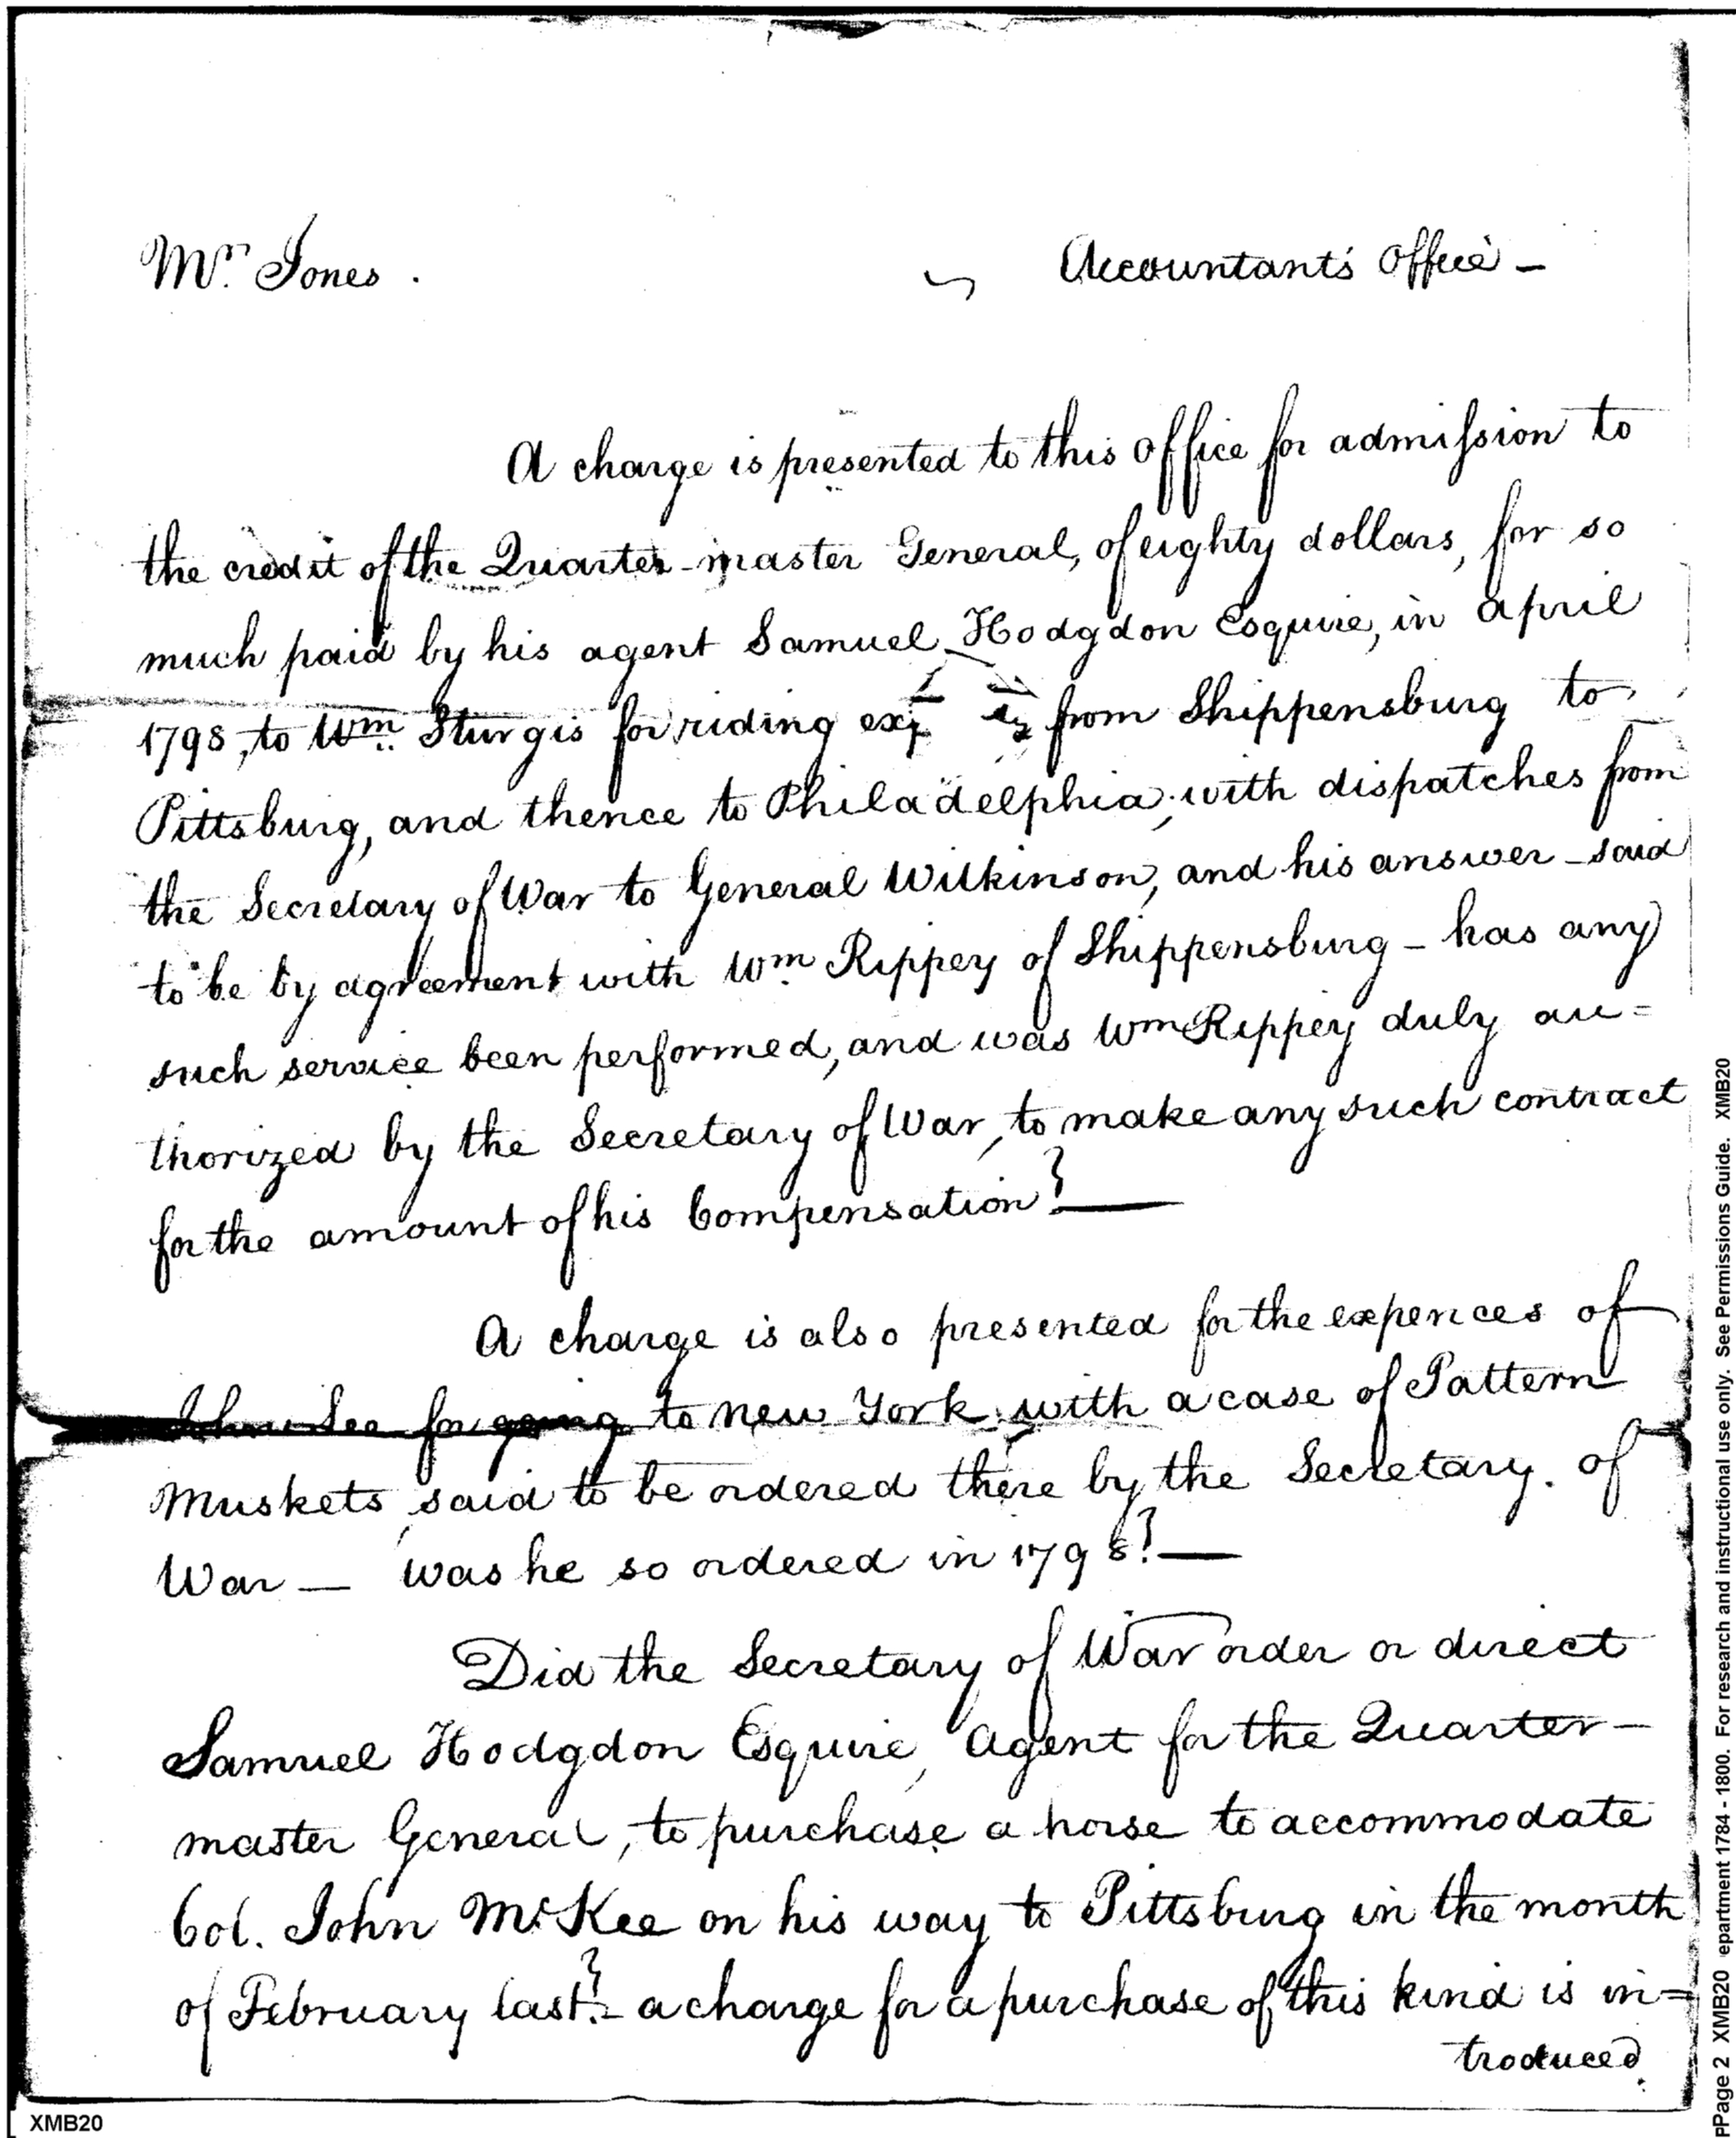 Mr. Jones. Accountant's Office –
A charge is presented to this office for admission to
the credit of the Quarter-master General, of eighty dollars, for so
much paid by his agent Samuel Hodgdon Esquire, in april
1798, to Wm. Sturgis for riding from Shippensburg to
Pittsburg, and thence to Philadelphia, with dispatches from
the Secretary of War to General Wilkinson, and his answer – said
to be by agreement with Wm. Rippey of Shippensburg – has any
such service been performed, and was Wm Rippey duly au=
thorized by the Secretary of War, to make any such contract
for the amount of his Compensation? —
A charge is also presented for the expences of
for going to new York with a case of Pattern
Muskets, said to be ordered there by the Secretary. of
War — was he so ordered in 1798? —
Did the Secretary of War order or direct
Samuel Hodgdon Esquire, Agent for the Quarter–
master General, to purchase a horse to accommodate
Col. John McKee on his way to Pittsburg in the month
of February last? – a charge for a purchase of this kind is in=
troduced.
XMB20
PPage 2 XMB20 epartment 1784 - 1800. For research and instructional use only. See Permissions Guide. XMB20